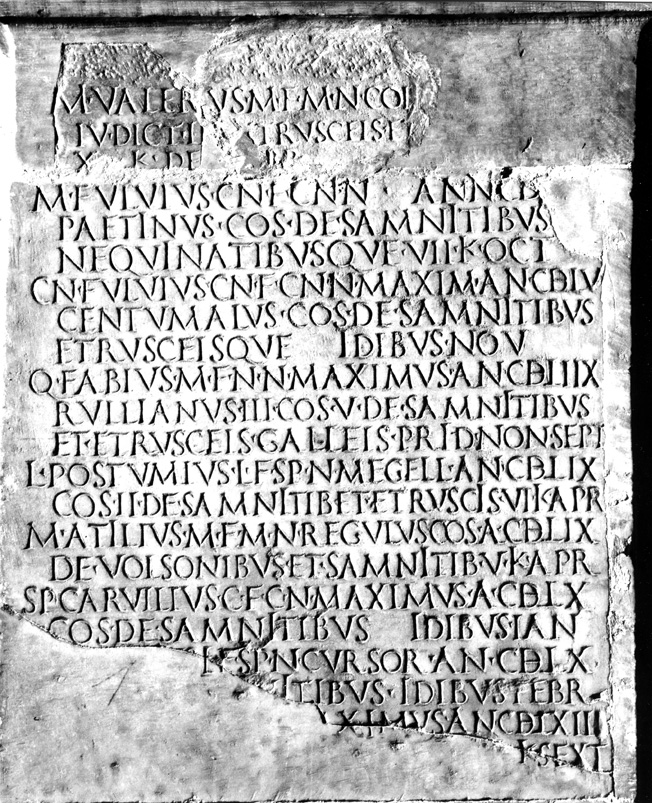 M·VALERIUS·M·F·M·N·CO
IV·DICT·II ETRUSCEIS·E
X K·DE
M·FVLVIVS·CN·F·CN·N· ANN·CD
PAETINVS·COS·DE·SAMNITIBVS
NEQVINATIBVSQVE·VII·K·OCT
CN·FVLVIVS·CN·F·CN·N·MAXIM·AN·CDLV
CENTVMALVS·COS·DE·SAMNITIBVS
ETRVSCEISQVE IDIBVS·NOV
Q·FABIVS·M·F·N·N·MAXIMVS·AN·CDLIIX
RVLLIANVS·III·COS·V·DE·SAMNITIBVS
ET·ETRVSCEIS·GALLEIS·PRID·NON·SEPT
L·POSTVMIVS·L·F·SP·N·MEGELL·AN·CDLIX
COS·II·DE·SAMNITIB·ET·ETRVSCIS·VII·K·APR
M·ATILIVS·M·F·M·N·REGVLVS·COS·A·CDLIX
DE·VOLSONIBVS·ET·SAMNITIBV·K·APR
SP·CARVILIVS·C·F·C·N·MAXIMVS·A·CDLX
COS·DE·SAMNITIBVS IDIBVS·IAN
F·SP·N·CVRSOR·AN·CDLX
ITIBVS·IDIBVS·FEBR
XIMVS·AN·CDLXIII
K·SEXT